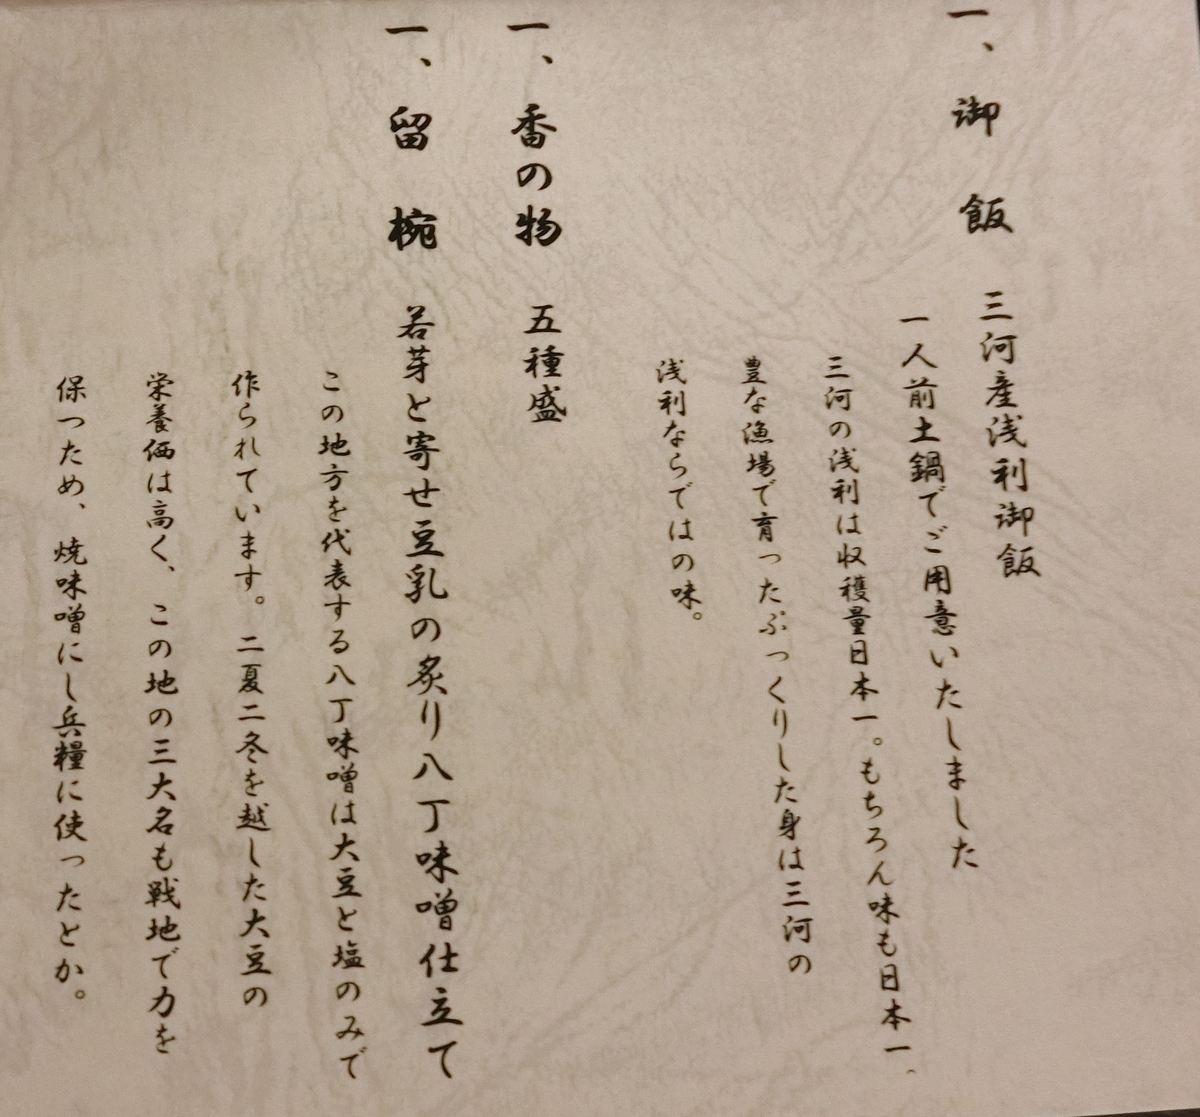 一、御飯 三河産浅利御飯
一人前土鍋でご用意いたしました
三河の浅利は収穫量日本一。もちろん味も日本一。
豊な漁場で育ったぷっくりした身は三河の
浅利ならではの味。
一、香の物 五種盛
一、留椀 若芽と寄せ豆乳の炙り八丁味噌仕立て
この地方を代表する八丁味噌は大豆と塩のみで
作られています。二夏二冬を越した大豆の
栄養価は高く、この地の三大名も戦地で力を
保つため、焼味噌にし兵糧に使ったとか。